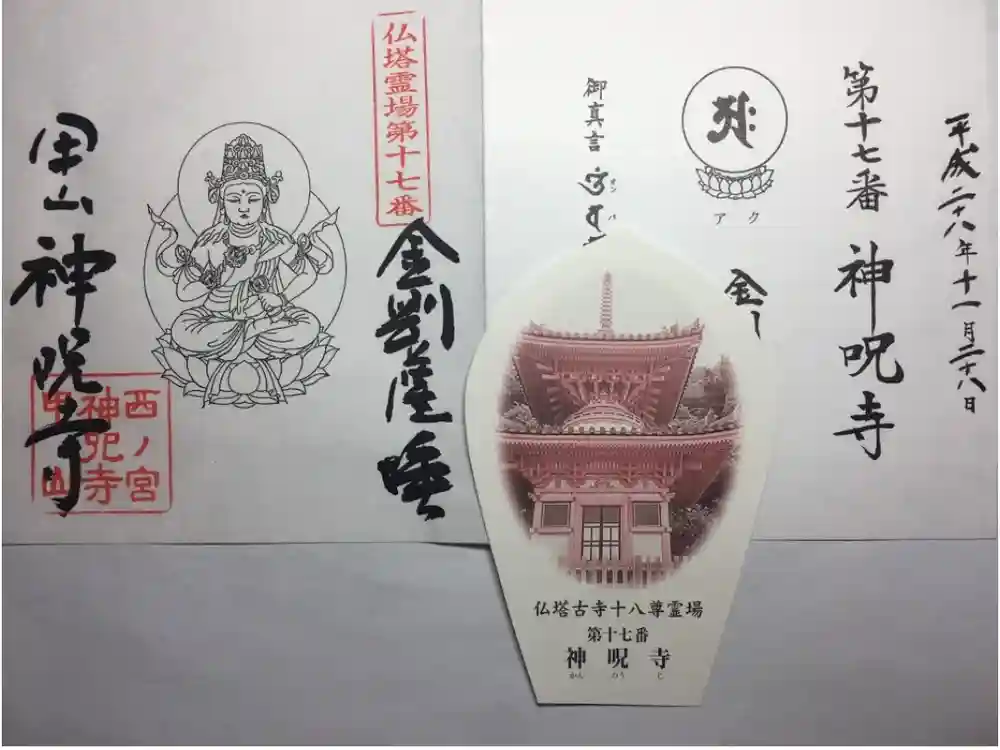 平成二十八年十一月二十八日
第十七番 神呪寺
アク
御真言
オン
バ
金
仏塔霊場第十七番
金剛薩埵
甲山 神呪寺
西ノ宮
神呪寺
甲山
仏塔古寺十八尊霊場
第十七番
神呪寺
かん のう じ